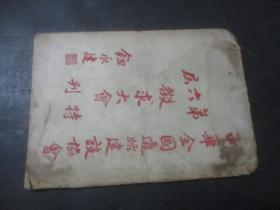 中華全國道路建設協會
第六屆徵求大會特刊
鈕永建